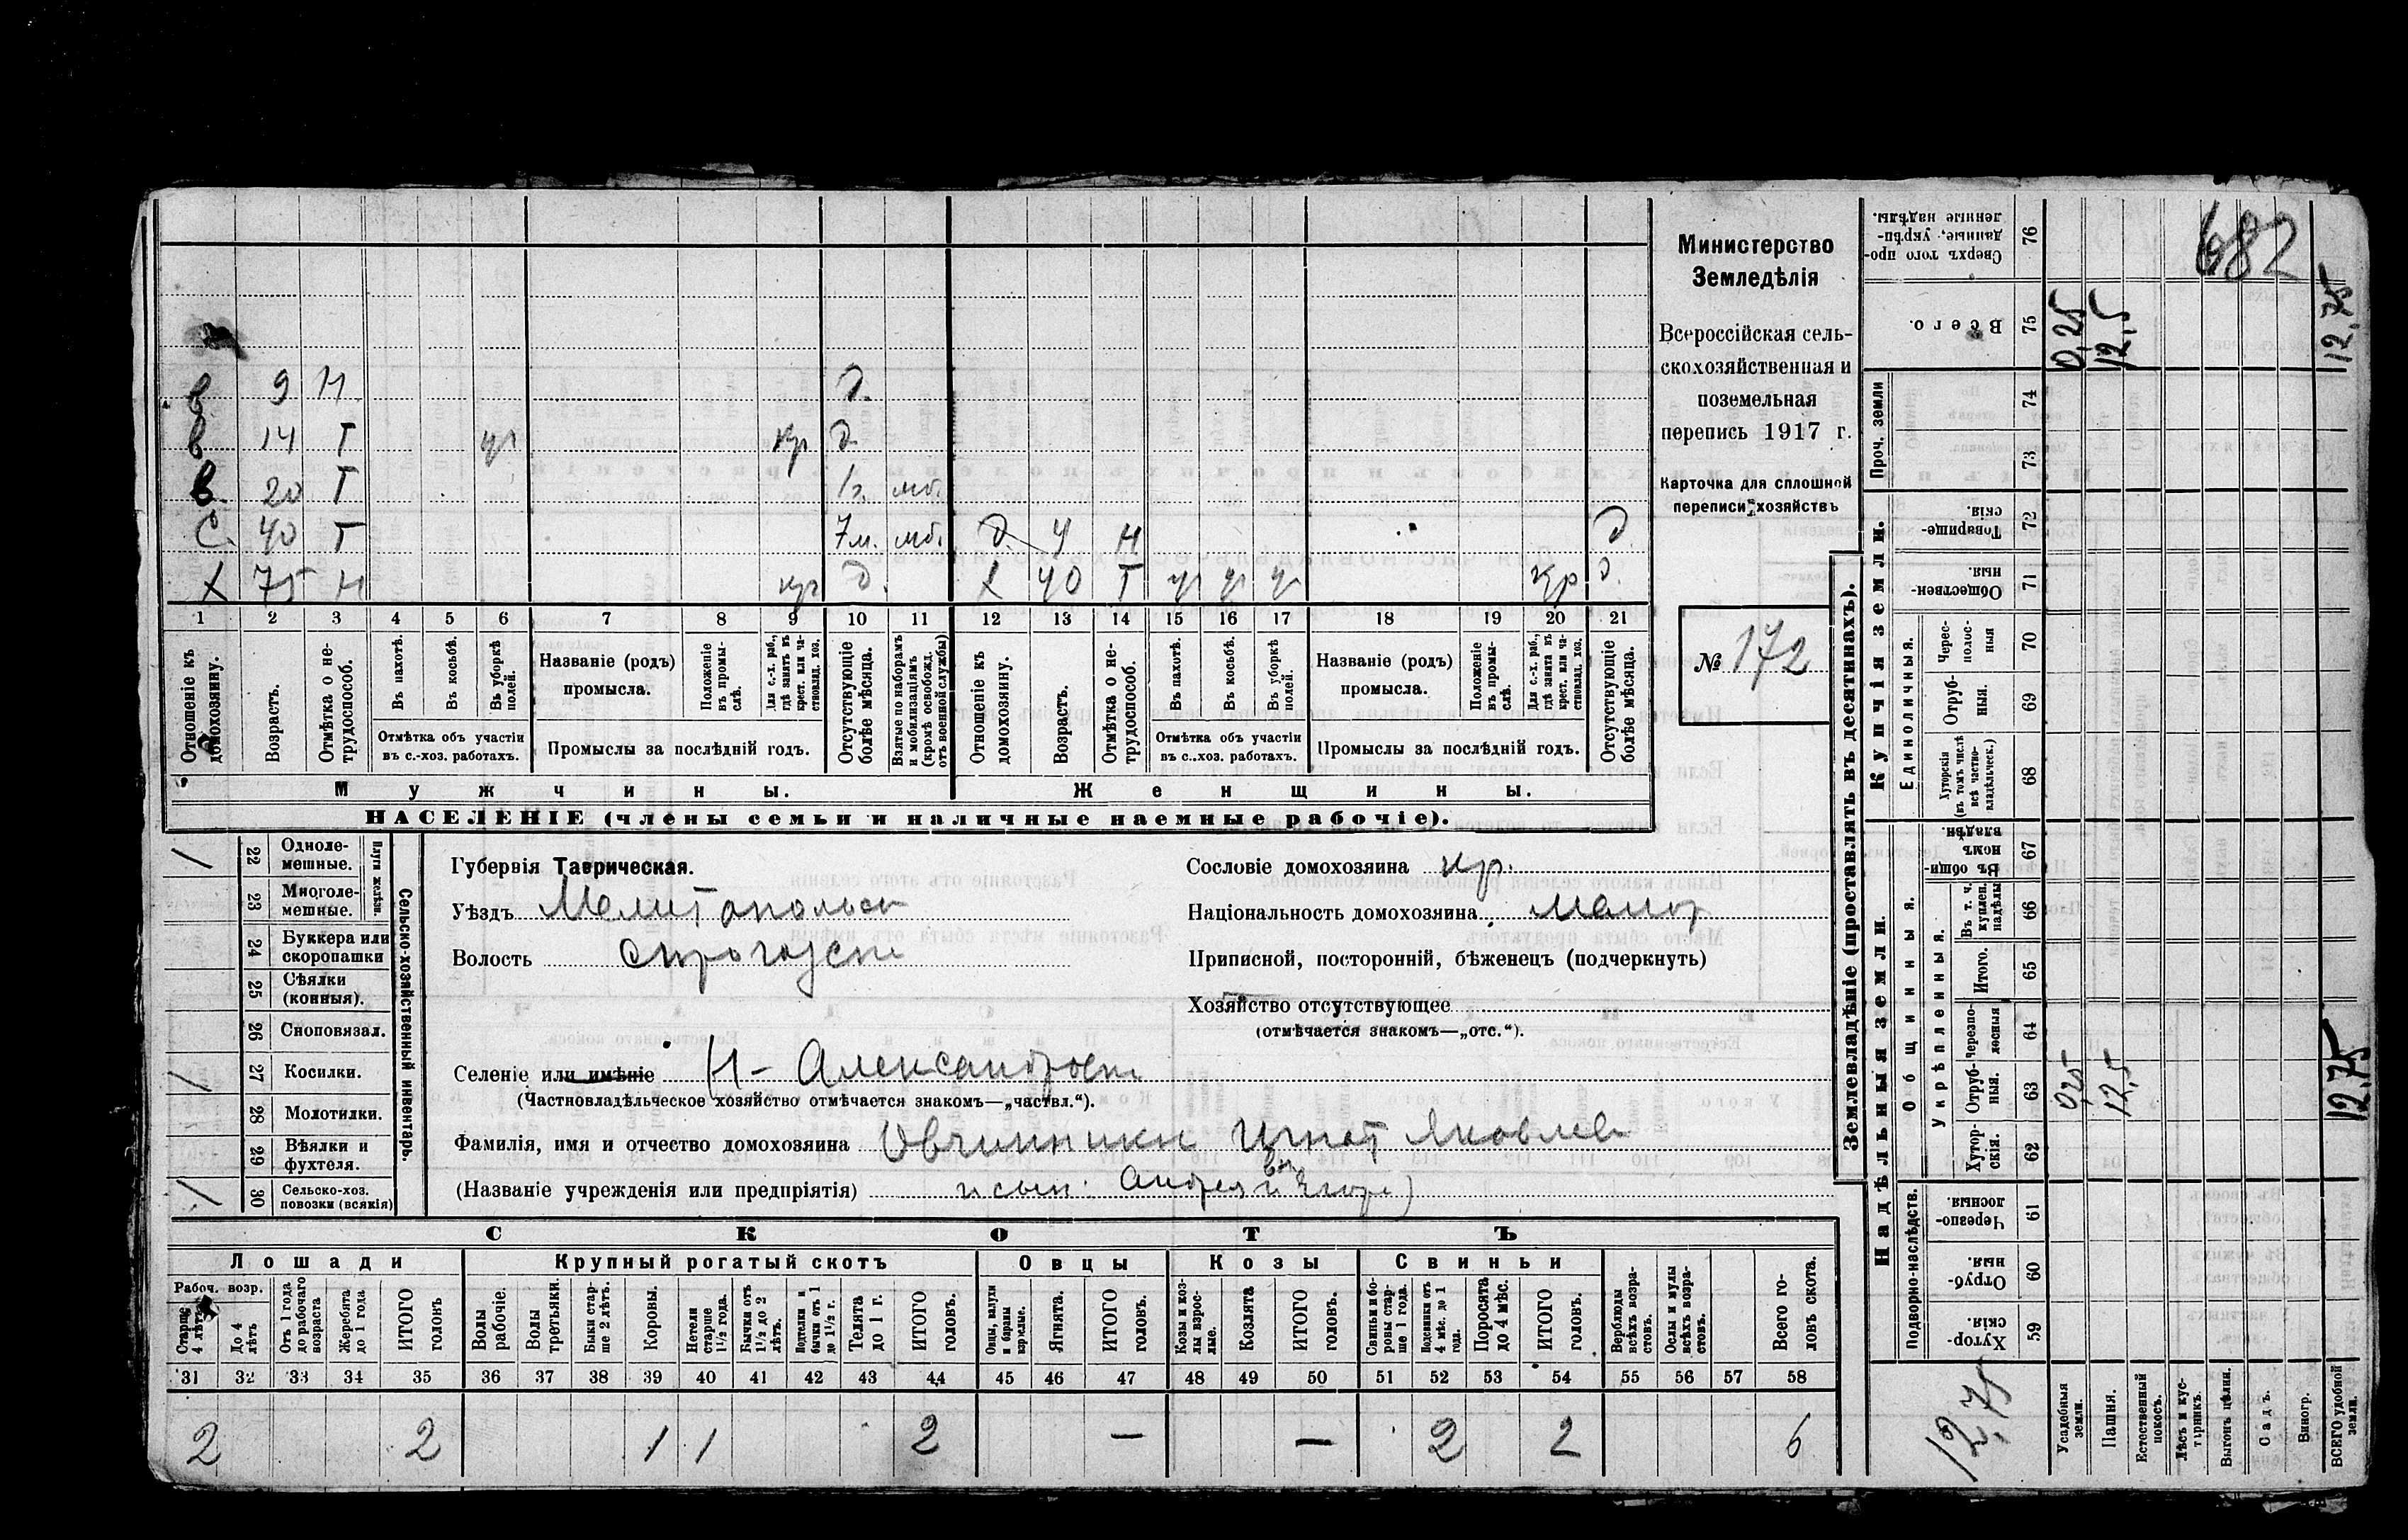 682
Министерство
Земледѣлія
Всероссійская сель-
скохозяйственная и
поземельная
перепись 1917 г.
Карточка для сплошной
переписи хозяйствъ
№ 172
в 9 Н д.
в 14 Т ур кр д
в. 20 Т 1г. мб.
С. 40 Т 7м. мб. д 4 Н д
Х 75 Н кр д. Х 40 Т ур ур ур кр д.
1 2 3 4 5 6 7 8 9 10 11 12 13 14 15 16 17 18 19 20 21
Отношеніе къ домохозяину.
Возрастъ.
Отмѣтка о не-трудоспособ.
Въ пахотѣ.
Въ косьбѣ.
Въ уборкѣ полей.
Отмѣтка объ участіи
въ с.-хоз. работахъ.
Названіе (родъ)
промысла.
Положеніе въ промы-слѣ.
Для с.-х. раб., гдѣ занятъ въ крест. или ча-стновлад. хоз.
Промыслы за послѣдній годъ.
Отсутствующіе болѣе мѣсяца.
Взятые по наборамъ и мобилизаціямъ (кромѣ освобожд. отъ военной службы)
Отношеніе къ домохозяину.
Возрастъ.
Отмѣтка о не-трудоспособ.
Въ пахотѣ.
Въ косьбѣ.
Въ уборкѣ полей.
Отмѣтка объ участіи
въ с.-хоз. работахъ.
Названіе (родъ)
промысла.
Положеніе въ промы-слѣ.
Для с.-х. раб., гдѣ занята въ крест. или ча-стновлад. хоз.
Промыслы за послѣдній годъ.
Отсутствующіе болѣе мѣсяца.
Мужчины.
Женщины.
НАСЕЛЕНІЕ (члены семьи и наличные наемные рабочіе).
Сельско-хозяйственный инвентарь.
Плуги желѣзн.
/ 22 Одноле-мешные.
23 Многоле-мешные.
24 Буккера или скоропашки
25 Сѣялки (конныя).
26 Сноповязал.
/ 27 Косилки.
28 Молотилки.
29 Вѣялки и фухтеля.
/ 30 Сельско-хоз. повозки (всякія)
Губернія Таврическая.
Уѣздъ Мелитопольск
Волость
Сословіе домохозяина кр.
Національность домохозяина малор
Приписной, посторонній, бѣженецъ (подчеркнуть)
Хозяйство отсутствующее
(отмѣчается знакомъ—„отс.“).
Селеніе или имѣніе Н- Александровк
(Частновладѣльческое хозяйство отмѣчается знакомъ—„частвл.“).
Фамилія, имя и отчество домохозяина Овчинникъ Игнат Яковлев
(Названіе учрежденія или предпріятія) и сын. Андрея и Егора)
СКОТЪ
Лошади
Крупный рогатый скотъ
Овцы
Козы
Свиньи
Рабоч. возр.
Старше 4 лѣтъ
До 4 лѣтъ
Отъ 1 года до рабочаго возраста
Жеребята до 1 года
ИТОГО головъ
Волы рабочіе.
Волы третьяки.
Быки стар-ше 2 лѣтъ.
Коровы.
Нетели старше 1½ года.
Бычки отъ 1½ до 2 лѣтъ.
Подтелки и бычки отъ 1 до 1½ г.
Телята до 1 г.
ИТОГО головъ.
Овцы, валухи и бараны взрослые.
Ягнята.
ИТОГО головъ.
Козы и коз-лы взрос-лые.
Козлята
ИТОГО головъ.
Свиньи и бо-ровы стар-ше 1 года.
Подсвинки отъ 4 мѣс. до 1 года.
Поросята до 4 мѣс.
ИТОГО головъ.
Верблюды всѣхъ возра-стовъ.
Ослы и мулы всѣхъ возра-стовъ.
Всего го-ловъ скота.
31 32 33 34 35 36 37 38 39 40 41 42 43 44 45 46 47 48 49 50 51 52 53 54 55 56 57 58
2 2 1 1 2 — — 2 2 6
Землевладѣніе (проставлять въ десятинахъ).
Надѣльныя земли.
Купчія земли.
Проч. земли
Подворно-наслѣдств.
Общинныя.
Укрѣпленныя.
Единоличныя.
Хутор-скія. 59
Отруб-ныя. 60
Черезпо-лосныя 61
Хутор-скія. 62
Отруб-ныя. 63 0,25 12,5 12,75
Черезпо-лосныя 64
Итого. 65
Въ т. ч. куплен. надѣлы 66
Въ общи-номъ владѣн. 67
Хуторскія (въ томъ числѣ всѣ частно-владѣльческ.) 68
Отруб-ныя. 69
Черес-полос-ныя 70
Обществен-ныя. 71
Товарище-скія. 72
73
74
Всего. 75 0,25 12,5 12,75
Сверхъ того про-данные, укрѣп-ленные надѣлы. 76
12,75
Усадебныя земли.
Пашня.
Естественный покосъ.
Лѣсъ и кус-тарникъ.
Выгонъ цѣлин.
Садъ.
Виногр.
ВСЕГО удобной земли.